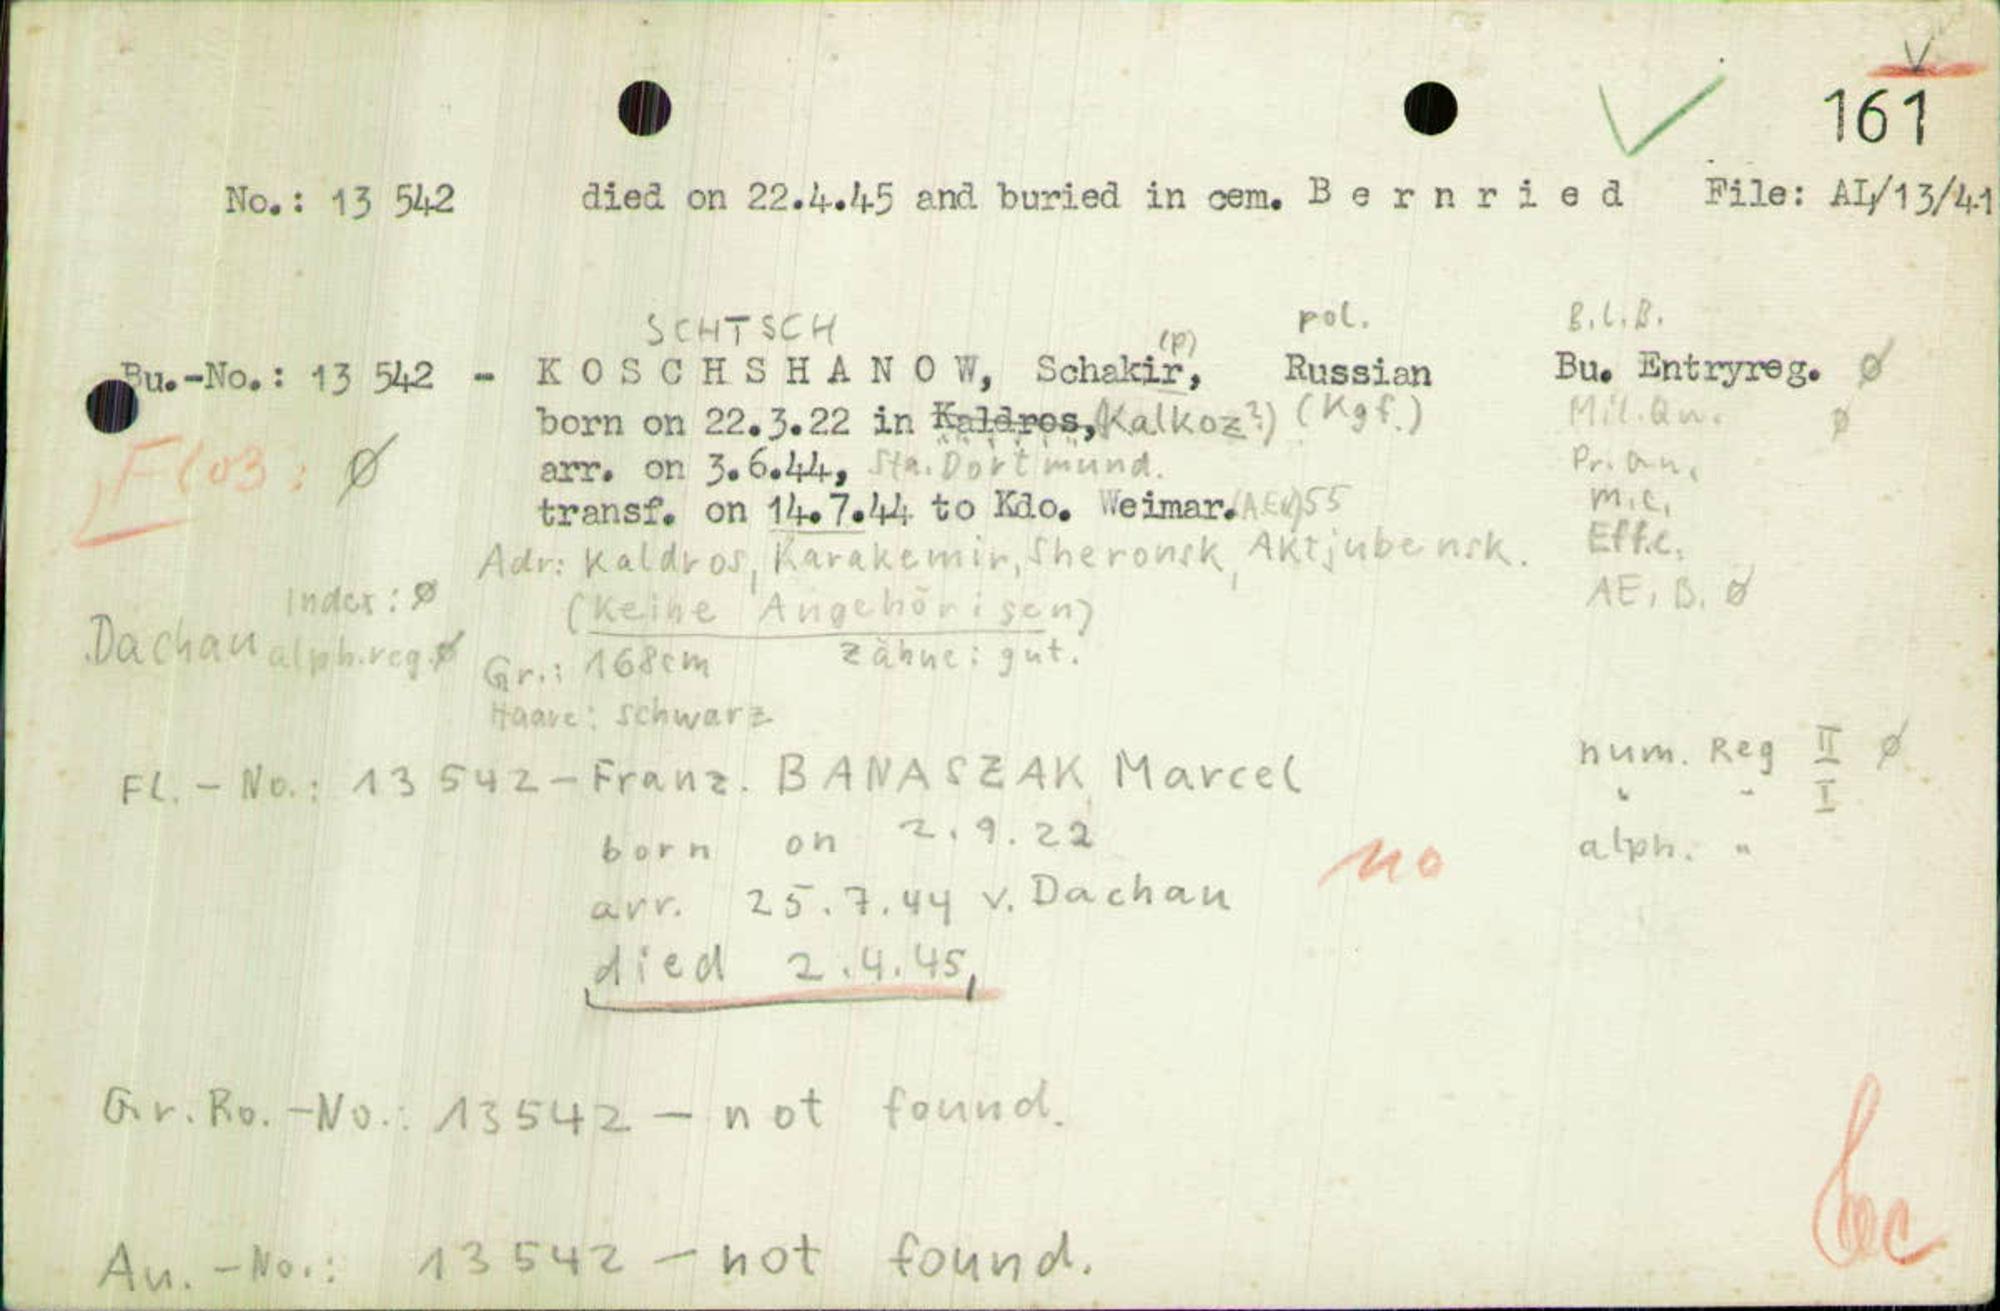 161
No.: 13 542 died on 22.4.45 and buried in cem. B e r n r i e d File: AI/13/41
SCHTSCH (p) pol. B.L.B.
Bu.-No.: 13 542 - K O S C H S H A N O W, Schakir, Russian Bu. Entryreg. ∅
born on 22.3.22 in Kaldros, (Kalkoz?) (Kgf.) Mil.Qu. ∅
Flos: ∅ arr. on 3.6.44, Sta. Dortmund. Pr. Qu.
transf. on 14.7.44 to Kdo. Weimar. 55 M.C.
Adr: Kaldros, Karakemir, Sheronsk, Aktjubensk. Eff.C.
Index: ∅ (Keine Angehörigen) AE, B. ∅
Dachau alph.reg. ∅ Gr.: 168cm Zähne: gut.
Haare: schwarz
Fl. - No.: 13 542 - Franz. BANASZAK Marcel num. Reg II ∅
" " I
born on 2.9.22 alph. "
no
arr. 25.7.44 v. Dachau
died 2.4.45,
Gr. Ro. - No.: 13542 - not found.
Au. - No.: 13542 - not found.